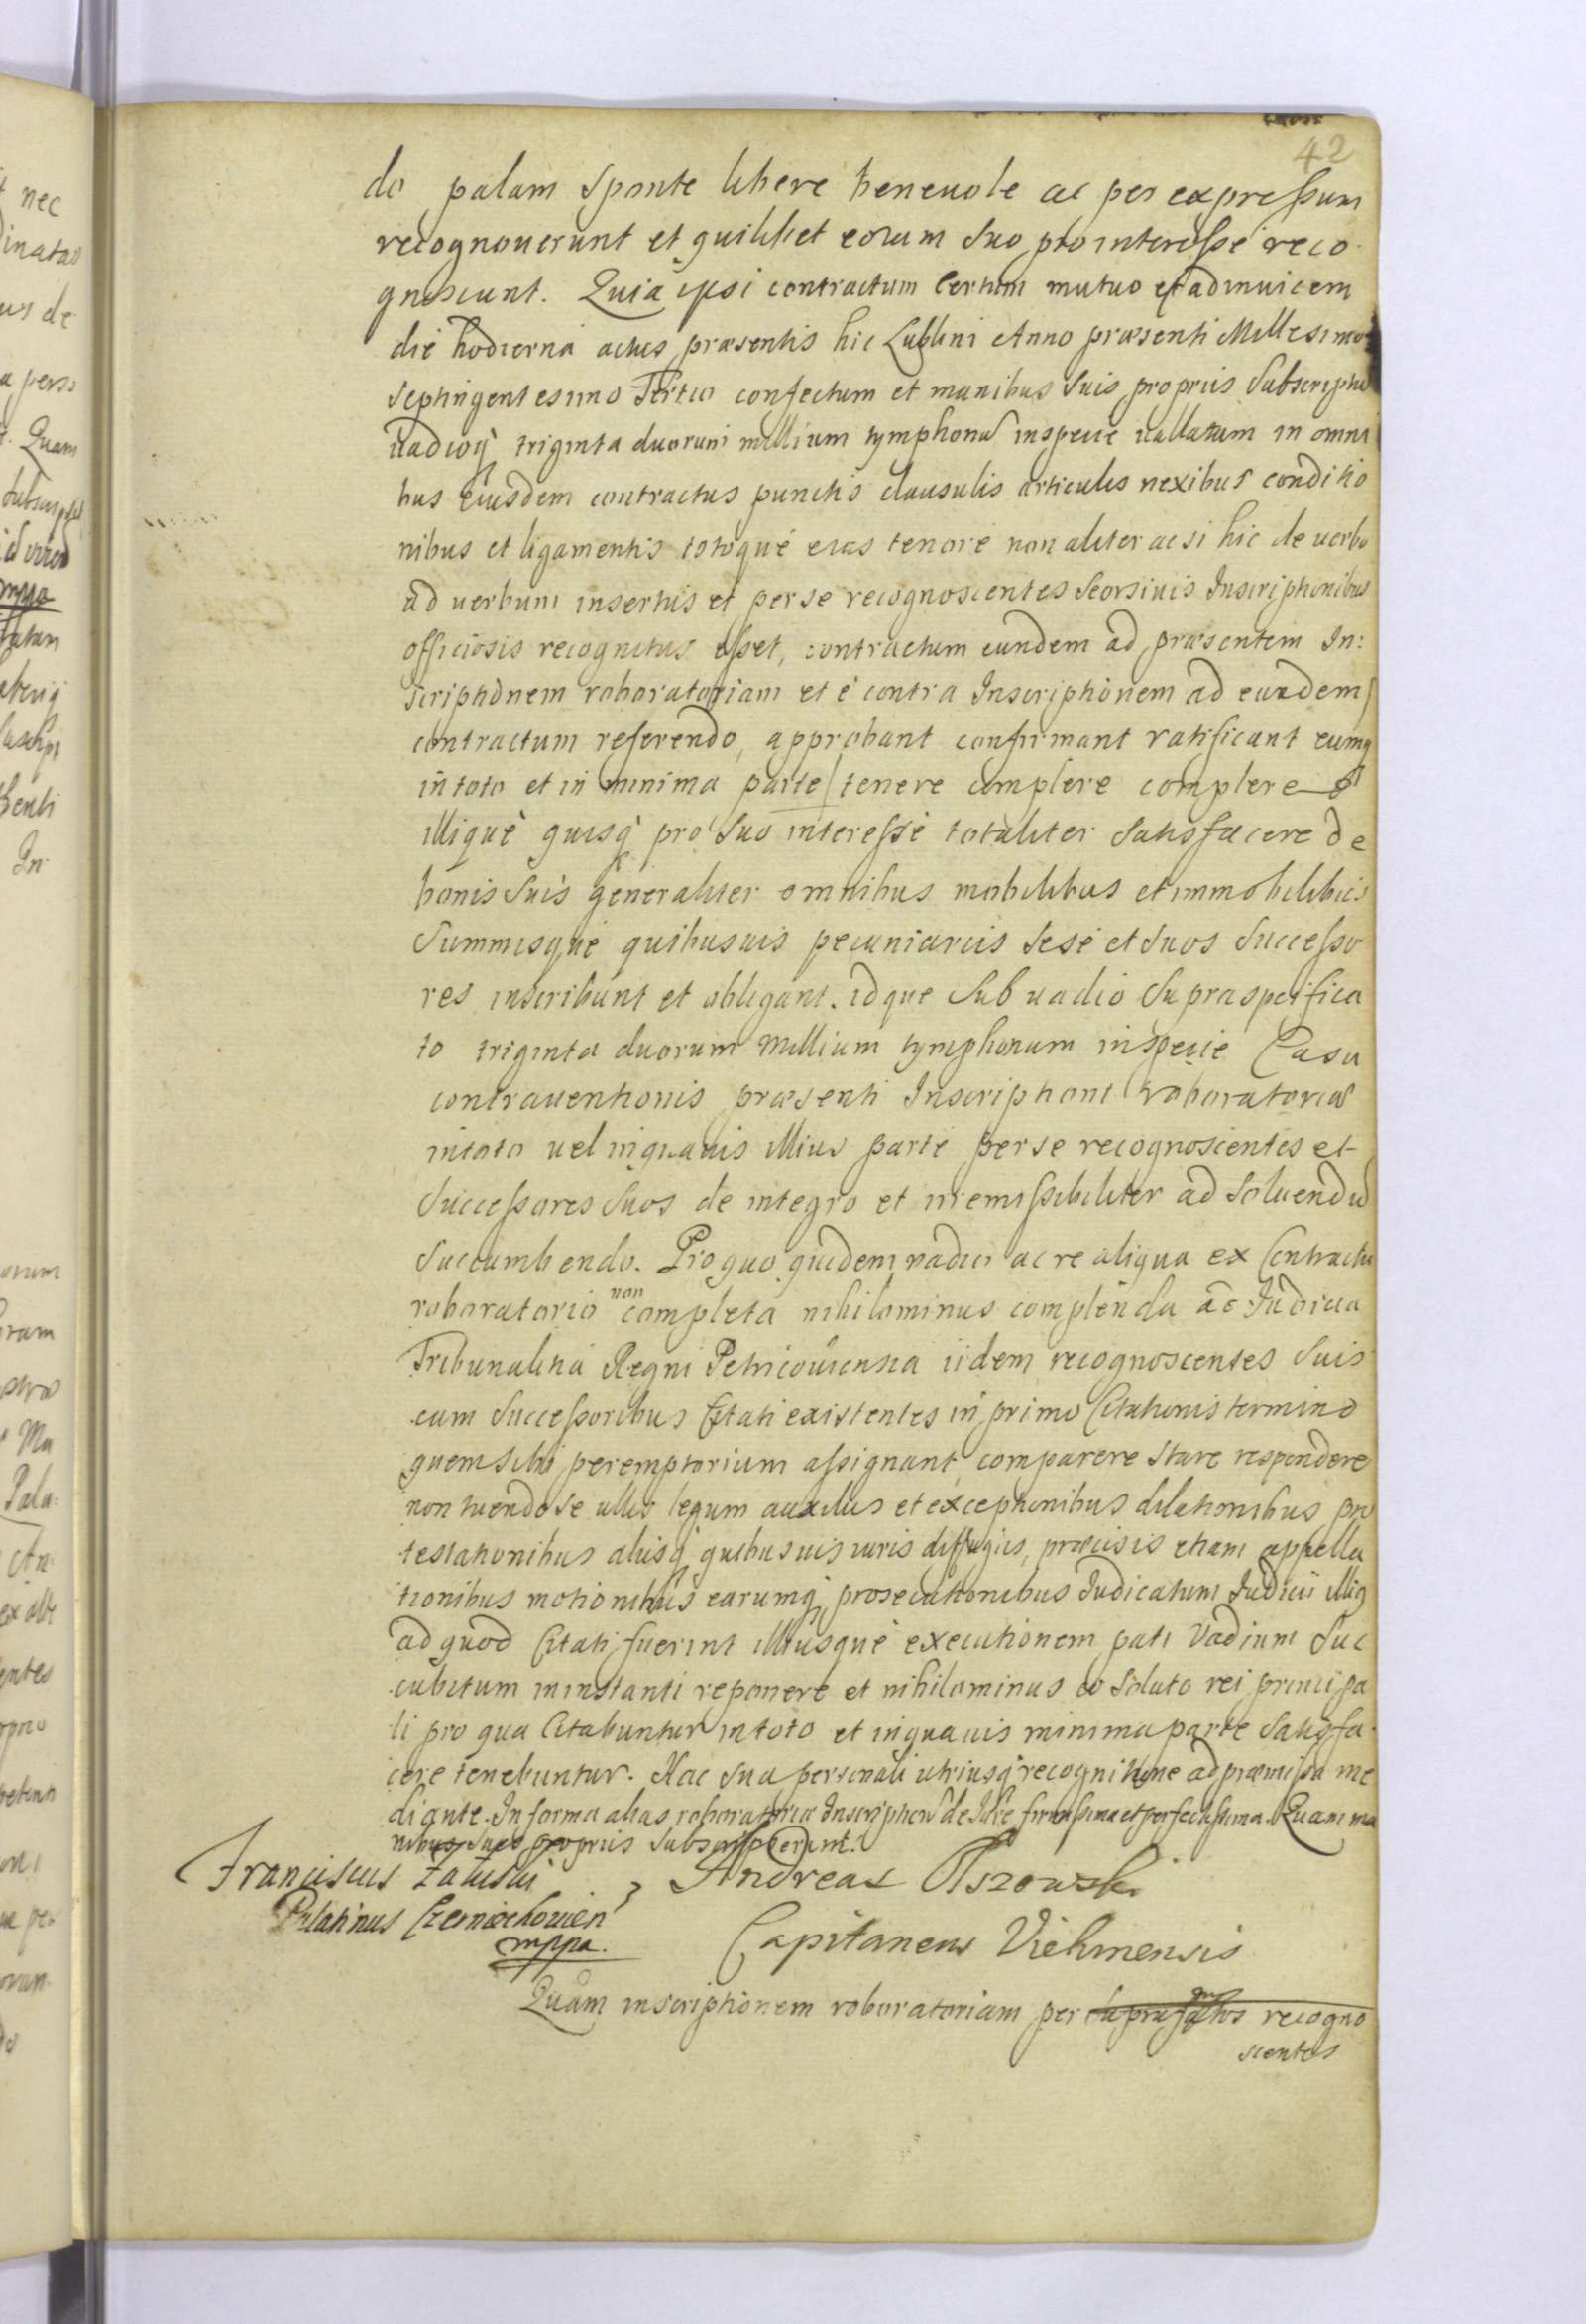 42
do palam sponte libere benevole ac per expressum
recognoverunt et quilibet eorum suo pro interesse reco
gnoscunt. Quia ipsi contractum certum mutuo et ad inuicem
die hodierna actus præsentis hic Lublini Anno præsenti Millesimo
septingentesimo Tertio confectum et manibus suis propriis subscriptu
uadioq; triginta duorum millium tymphonu in specie uallatum in omni
bus eiusdem contractus punctis clausulis articulis nexibus conditio
nibus et ligamentis totoque eius tenore non aliter ac si hic de uerbo
ad uerbum insertus et per se recognoscentes seorsiuis Inscriptionibus
officiosis recognitus esset, contractum eundem ad præsentem In:
scriptionem roboratoriam et è contra Inscriptionem ad eundem
contractum referendo, approbant confirmant ratificant eumq
in toto et in minima parte tenere complere
illique quisq pro suo interesse totaliter satisfacere de
bonis suis generaliter omnibus mobilibus et immobilibus
summisque quibusuis pecuniariis sese et suos successo
res inscribunt et obligant. idque sub uadio supraspecifica
to triginta duorum millium tymphonum in specie Casu
contrauentionis præsenti Inscriptioni roboratoriæ
in toto uel in quauis illius parte per se recognoscentes et
successores suos de integro et irremissibiliter ad soluendu
succumbendo. Pro quo quidem uadio ac re aliqua ex Contractu
roboratorio non completa nihilominus complenda ac Iudicia
Tribunalitia Regni Petricouiensia iidem recognoscentes suis
cum successoribus Citati existentes in primo Citationis termino
quem sibi peremptorium assignant comparere stare respondere
non tuendo se ullis legum auxiliis et exceptionibus dilationibus pro
testationibus aliisq quibusuis iuris diffugiis, præcisis etiam appella
tionibus motionibus earumq prosecutionibus Iudicatum Iudicii illiq
ad quod Citati fuerint illiusque executionem pati Vadium suc
cubitum in instanti reponere et nihilominus eo soluto rei principa
li pro qua Citabuntur in toto et in quauis minima parte satisfa
cere tenebuntur. Hac sua personali utriusq recognitione ad præmissa me
diante. In forma alias roboratoriæ Inscriptionu de Iure firmissima et perfectissima. Quam ma
nibus suis propriis subscripserunt.
Franciscus Załuski
Palatinus Czerniechouien
mppa.
Andreas Olszowski
Capitaneus Vielunensis
Quam inscriptionem roboratoriam per recogno
scentes